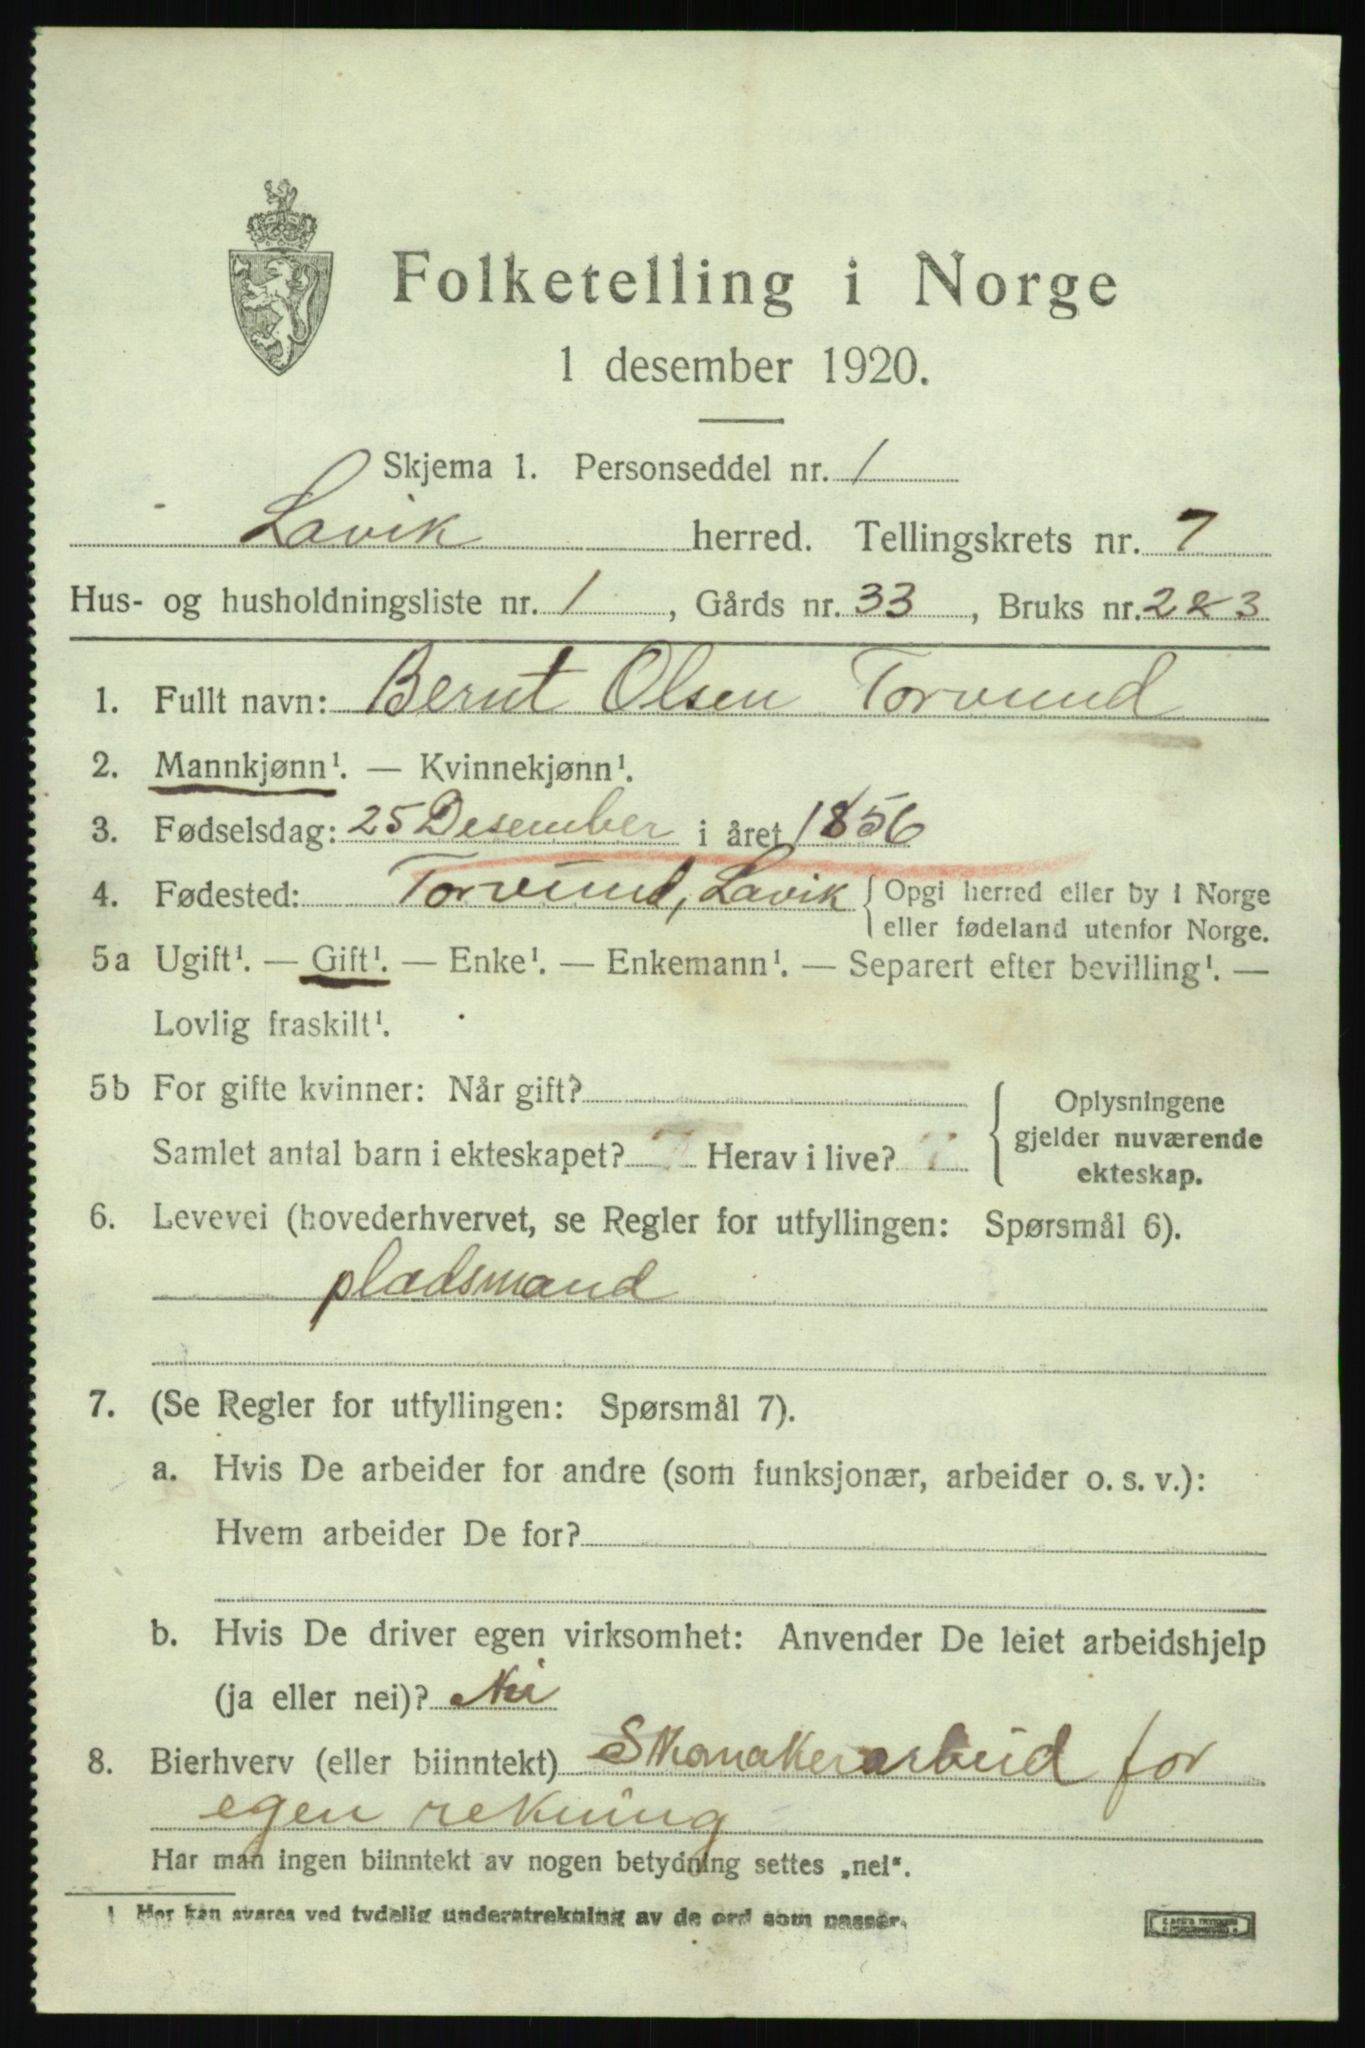 Folketelling i Norge
1 desember 1920.
Skjema 1. Personseddel nr. 1
Lavik herred. Tellingskrets nr. 7
Hus- og husholdningsliste nr. 1, Gårds nr. 33, Bruks nr. 2 & 3
1. Fullt navn: Bernt Olsen Torvund
2. Mannkjønn¹. — Kvinnekjønn¹.
3. Fødselsdag: 25 Desember i året 1856
4. Fødested: Torvund, Lavik { Opgi herred eller by i Norge
eller fødeland utenfor Norge.
5a Ugift¹. — Gift¹. — Enke¹. — Enkemann¹. — Separert efter bevilling¹. —
Lovlig fraskilt¹.
5b For gifte kvinner: Når gift?
Samlet antal barn i ekteskapet? 7 Herav i live? 7
Oplysningene
gjelder nuværende
ekteskap.
6. Levevei (hovederhvervet, se Regler for utfyllingen: Spørsmål 6).
pladsmand
7. (Se Regler for utfyllingen: Spørsmål 7).
a. Hvis De arbeider for andre (som funksjonær, arbeider o. s. v.):
Hvem arbeider De for?
b. Hvis De driver egen virksomhet: Anvender De leiet arbeidshjelp
(ja eller nei)? Nei
8. Bierhverv (eller biinntekt) Skomakerarbeid for
egen rekning
Har man ingen biinntekt av nogen betydning settes „nei“.
1 Her kan svares ved tydelig understrekning av de ord som passer.